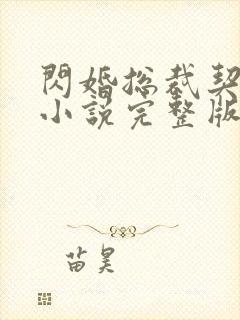 閃婚總裁契
小說完整版
苗昊